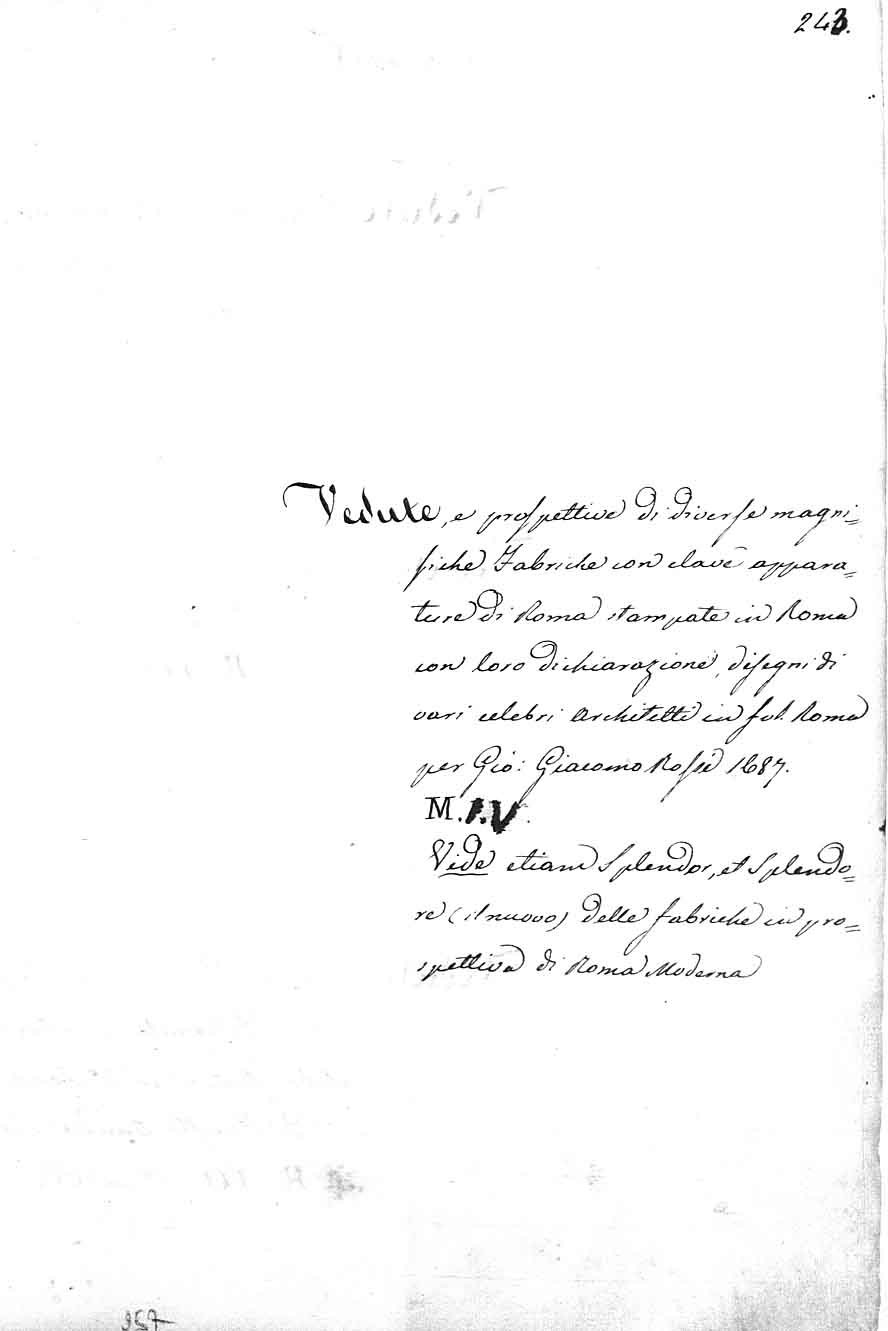 243.
Vedute, e prospettive di diverse magni=
fiche Fabriche con clave appara=
ture di Roma stampate in Roma
con loro dichiarazione, disegni di
vari celebri Architetti in fol. Roma
per Gio: Giacomo Rossi 1687.
M.I.V.
Vide etiam Splendor, et Splendo=
re (il nuovo) delle fabriche in pro=
spettiva di Roma Moderna